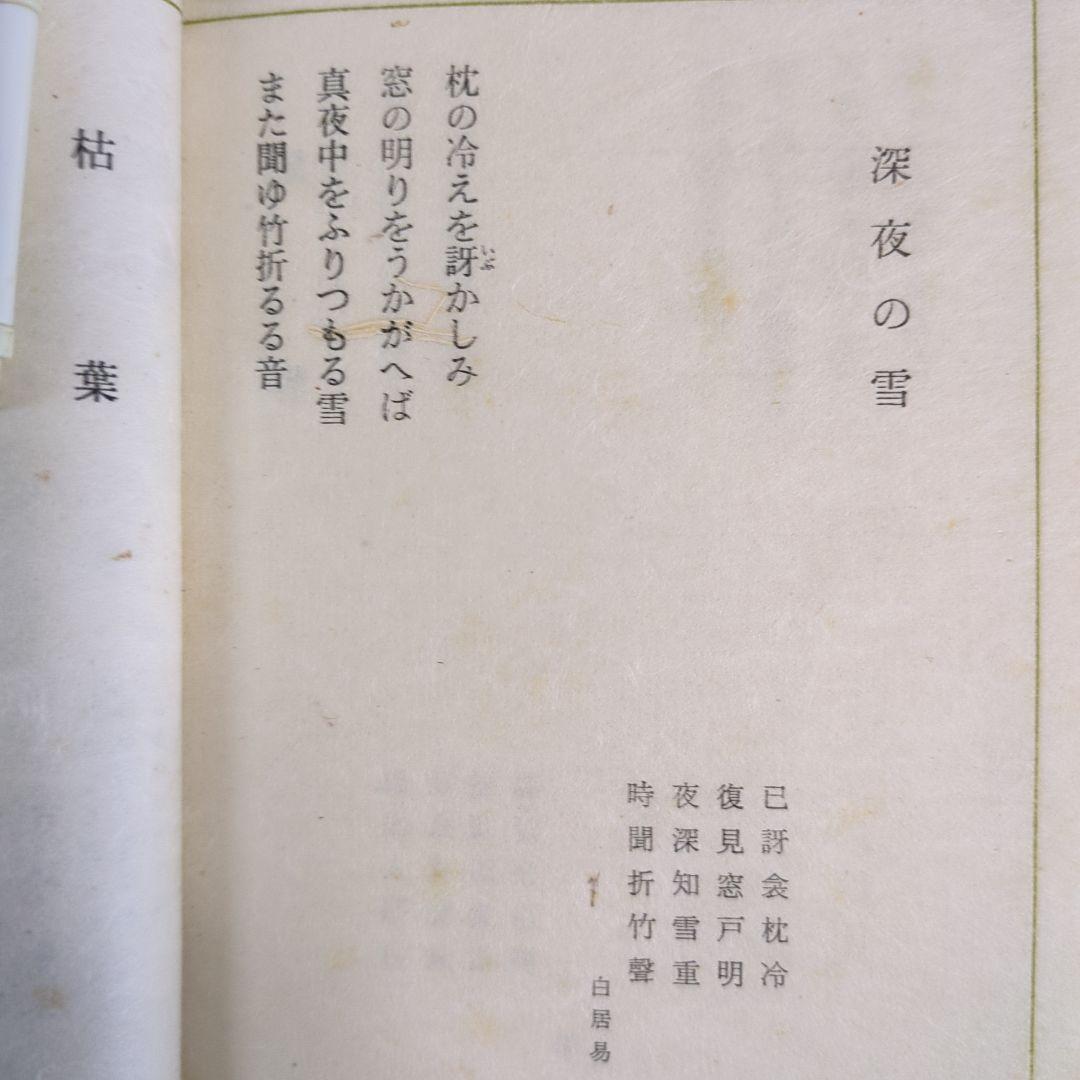 深夜の雪
已訝衾枕冷
復見窓戸明
夜深知雪重
時聞折竹聲
白居易
枕の冷えを訝かしみ
いぶ
窓の明りをうかがへば
真夜中をふりつもる雪
また聞ゆ竹折るる音
枯葉